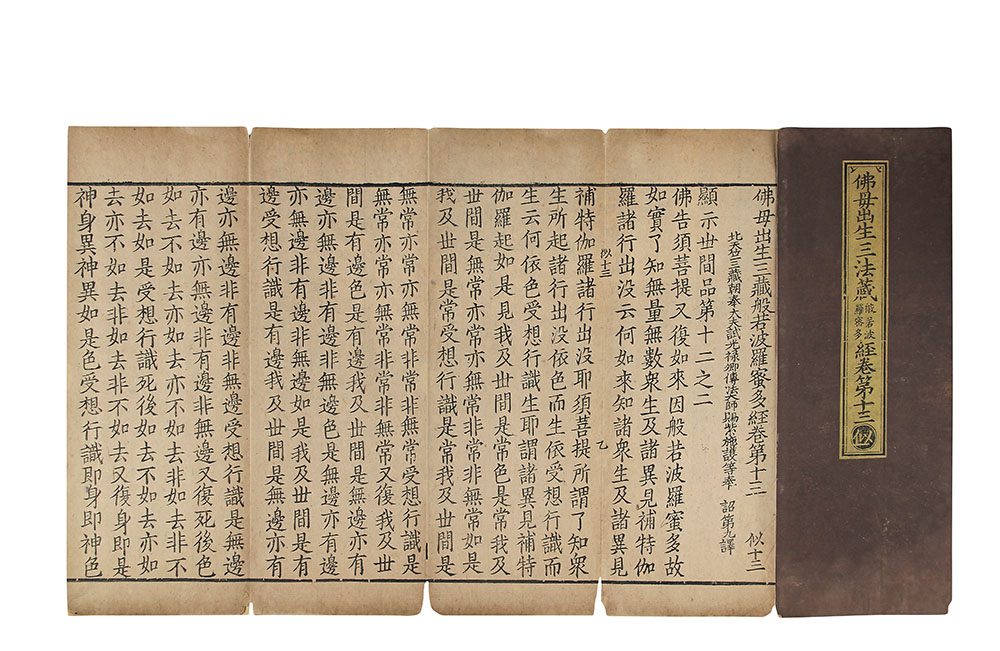 佛母出生三法藏般若波羅蜜多經卷第十三 似
佛母出生三藏般若波羅蜜多經卷第十三 似十三
北天竺三藏朝奉大夫試光祿卿傳法大師賜紫施護等奉 詔第九譯
顯示世間品第十二之二
佛告須菩提又復如來因般若波羅蜜多故
如實了知無量無數衆生及諸異見補特伽
羅諸行出没云何如來知諸衆生及諸異見
似十三 乙
補特伽羅諸行出没耶須菩提所謂了知衆
生所起諸行出没依色而生依受想行識而
生云何依色受想行識生耶謂諸異見補特
伽羅起如是見我及世間是常色是常我及
世間是無常亦常亦無常非常非無常如是
我及世間是常受想行識是常我及世間是
無常亦常亦無常非常非無常受想行識是
無常亦常亦無常非常非無常又復我及世
間是有邊色是有邊我及世間是無邊亦有
邊亦無邊非有邊非無邊色是無邊亦有邊
亦無邊非有邊非無邊如是我及世間是有
邊受想行識是有邊我及世間是無邊亦有
邊亦無邊非有邊非無邊受想行識是無邊
亦有邊亦無邊非有邊非無邊又復死後色
如去不如去亦如去亦不如去非如去非不
如去如是受想行識死後如去不如去亦如
去亦不如去非如去非不如去又復身即是
神身異神異如是色受想行識即身即神色